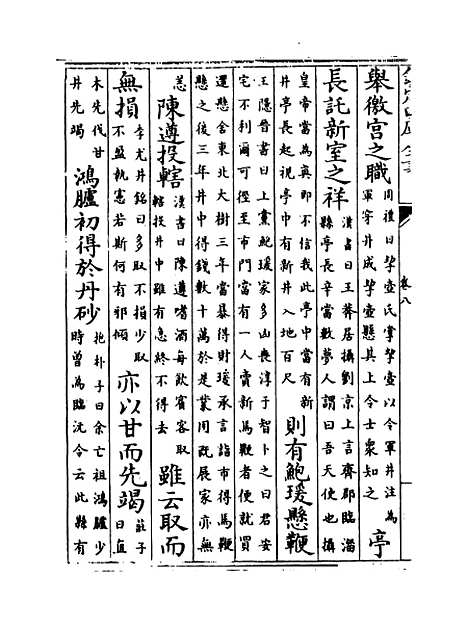 欽定四庫全書
卷八
舉徽宫之職
周禮曰挈壺氏掌挈壺以令軍井注為
軍穿井成挈壺懸其上令士衆知之
亭
長託新室之祥
漢書曰王莽居攝劉京上言齊郡臨淄
縣亭長辛當數夢人謂曰吾天使也攝
皇帝當為真即不信我此亭中當有新
井亭長起視亭中有新井入地百尺
則有鮑瑗懸鞭
王隱晉書曰上黨鮑瑗家多山喪淳于智卜之曰君安
宅不利爾可徑至市門當有一人賣新馬鞭者便就買
還懸舍東北大樹三年當暴得財瑗承言詣市得馬鞭
懸之後三年井中得錢數十萬於是業用既展家亦無
恙
陳遵投轄
漢書曰陳遵嗜酒每飲賓客取
轄投井中雖有急終不得去
雖云取而
無損
李尤井銘曰多取不損少取
不盈執憲若斯何有邪傾
亦以甘而先竭
莊子
曰直
木先伐甘
井先竭
鴻臚初得於丹砂
抱朴子曰余亡祖鴻臚少
時曾為臨沅令云此縣有